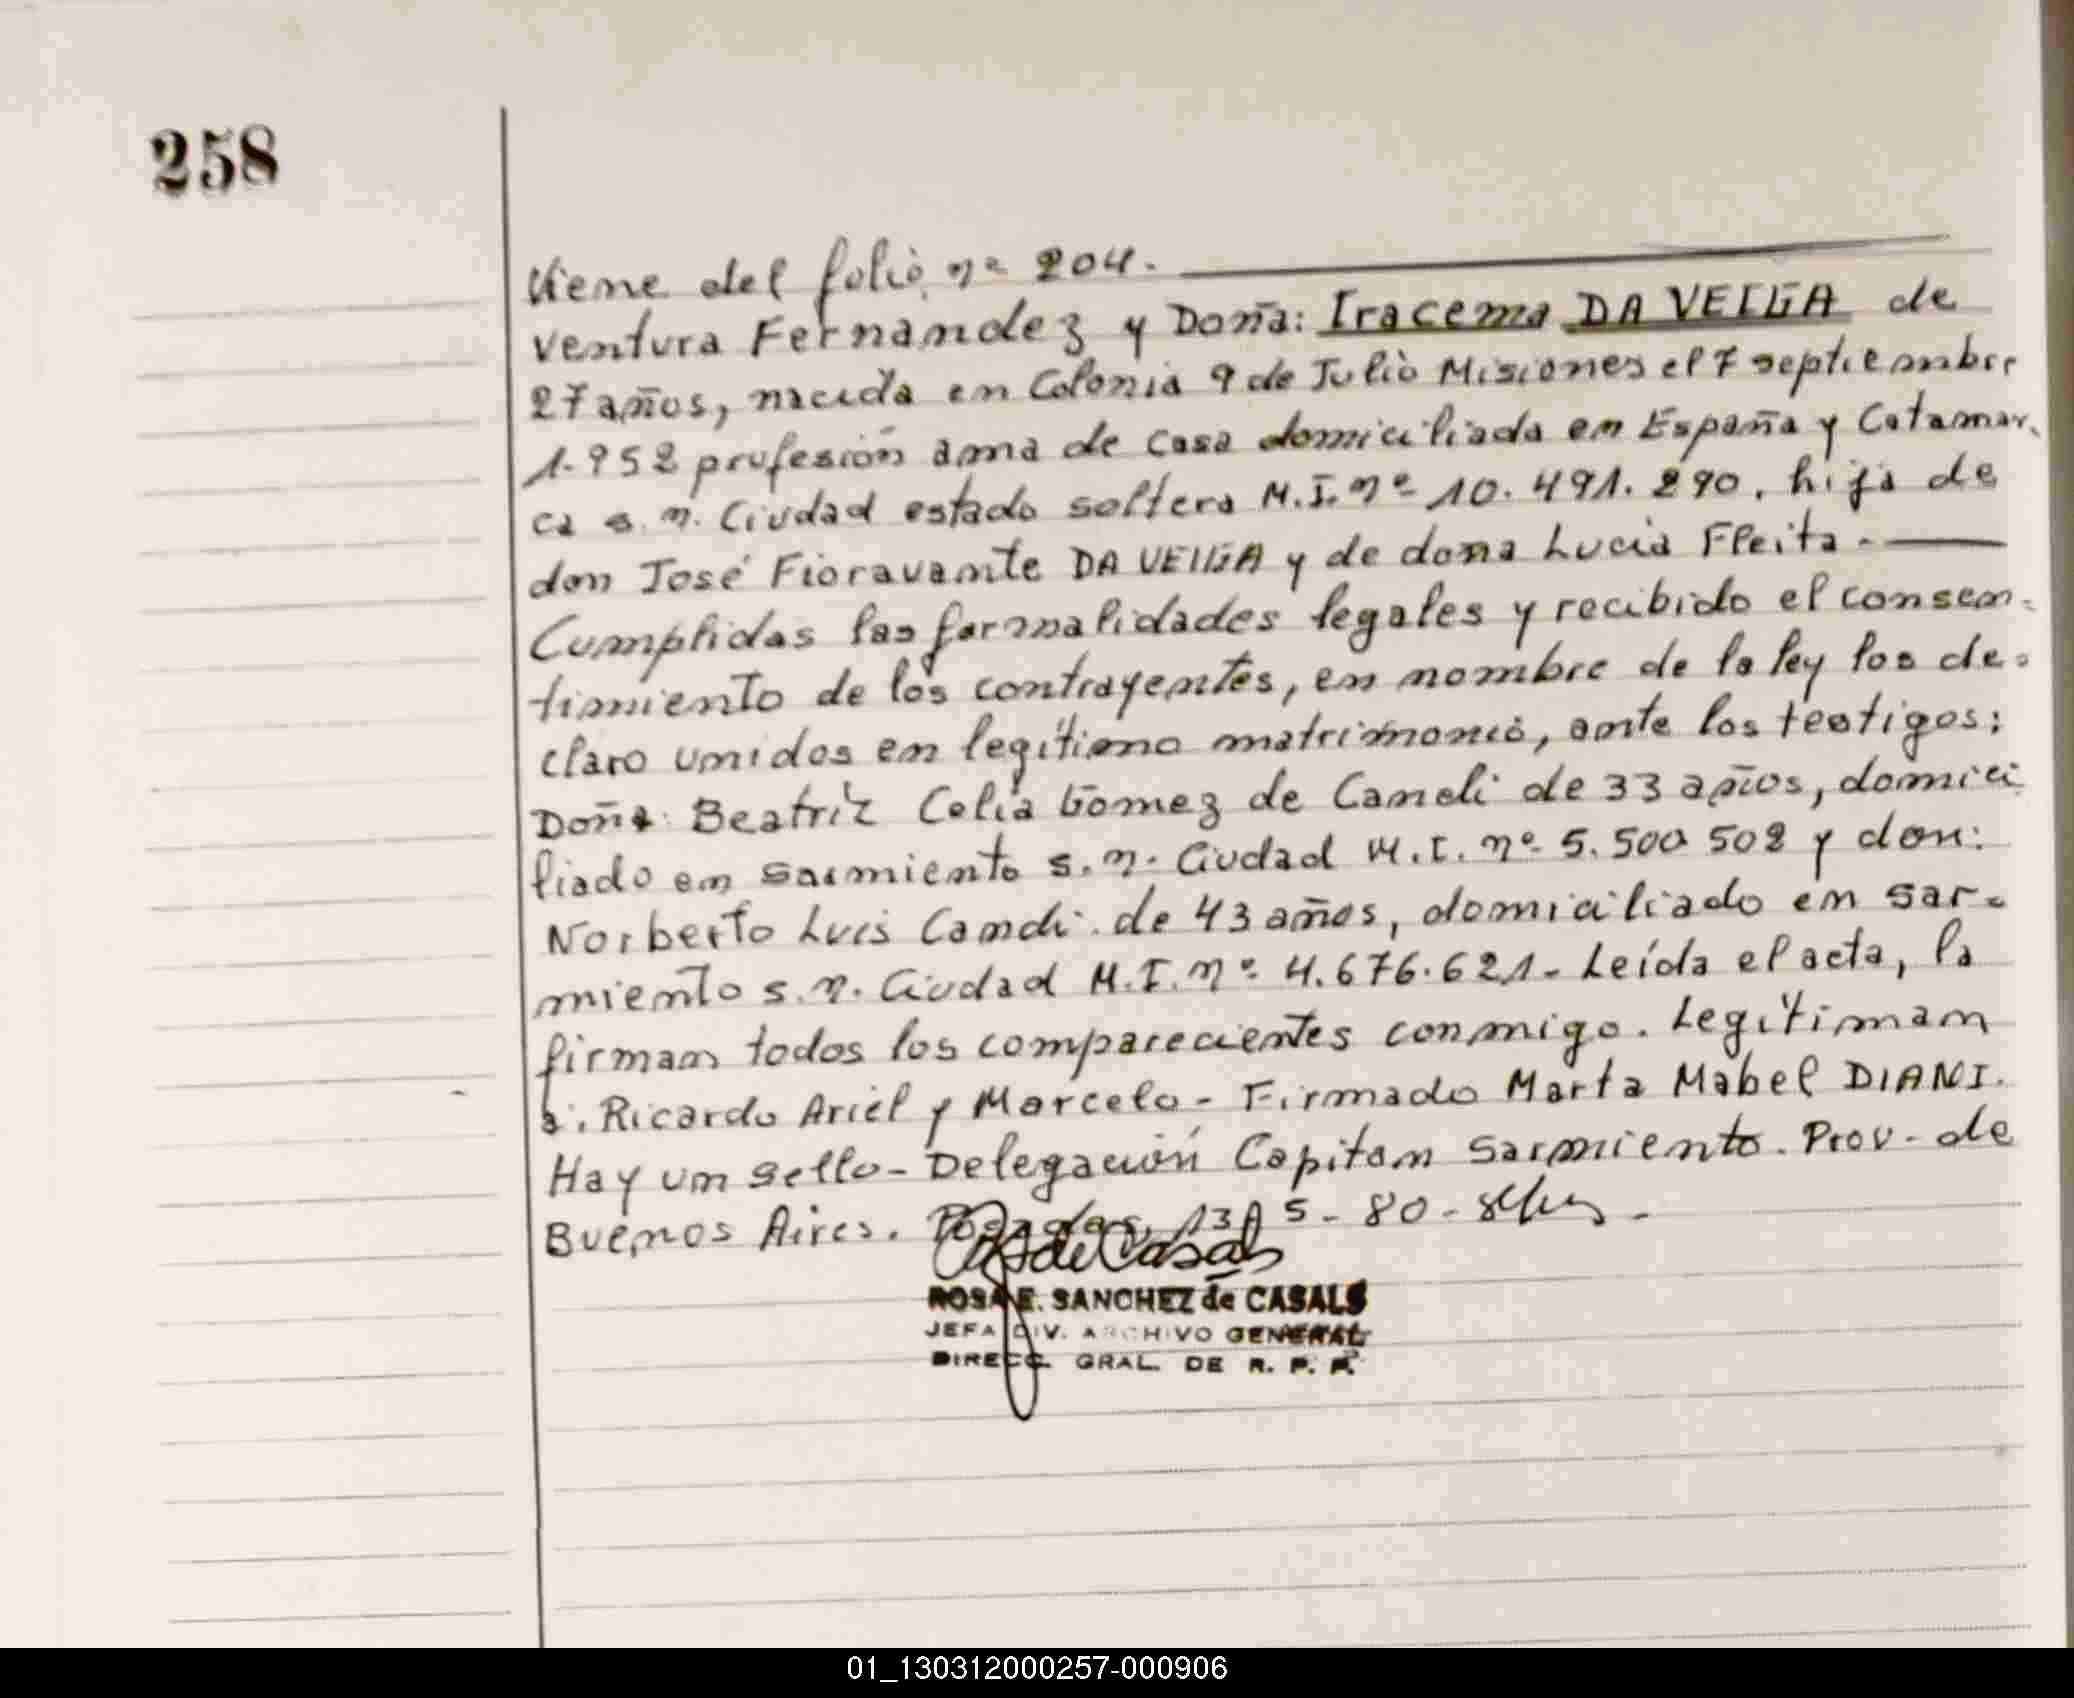 258
Viene del folio nº 204.
Ventura Fernandez y Doña: Iracema DA VEIGA de
27 años, nacida en Colonia 9 de Julio Misiones el 7 septiembre
1.952 profesión ama de casa domiciliada en España y Catamar-
ca s.n. Ciudad estado soltera M.I. nº 10.491.290, hija de
don José Fioravante DA VEIGA y de doña Lucia Fleita.
Cumplidas las formalidades legales y recibido el consen-
timiento de los contrayentes, en nombre de la ley los de-
claro unidos en legítimo matrimonio, ante los testigos:
Doña: Beatriz Celia Gomez de Candi de 33 años, domici
liado en Sarmiento s.n. Ciudad M.I. nº 5.500 502 y don:
Norberto Luis Candi de 43 años, domiciliado en Sar-
miento s.n. Ciudad M.I. nº 4.676.621- Leída el acta, la
firman todos los comparecientes conmigo. Legitiman
a: Ricardo Ariel y Marcelo- Firmado Marta Mabel DIANI.
Hay un sello- Delegación Capitan Sarmiento. Prov- de
Buenos Aires. Posadas, 13 5- 80-
ROSA E. SANCHEZ de CASALS
JEFA DIV. ARCHIVO GENERAL
DIRECC. GRAL. DE R. P. P.
01_130312000257-000906